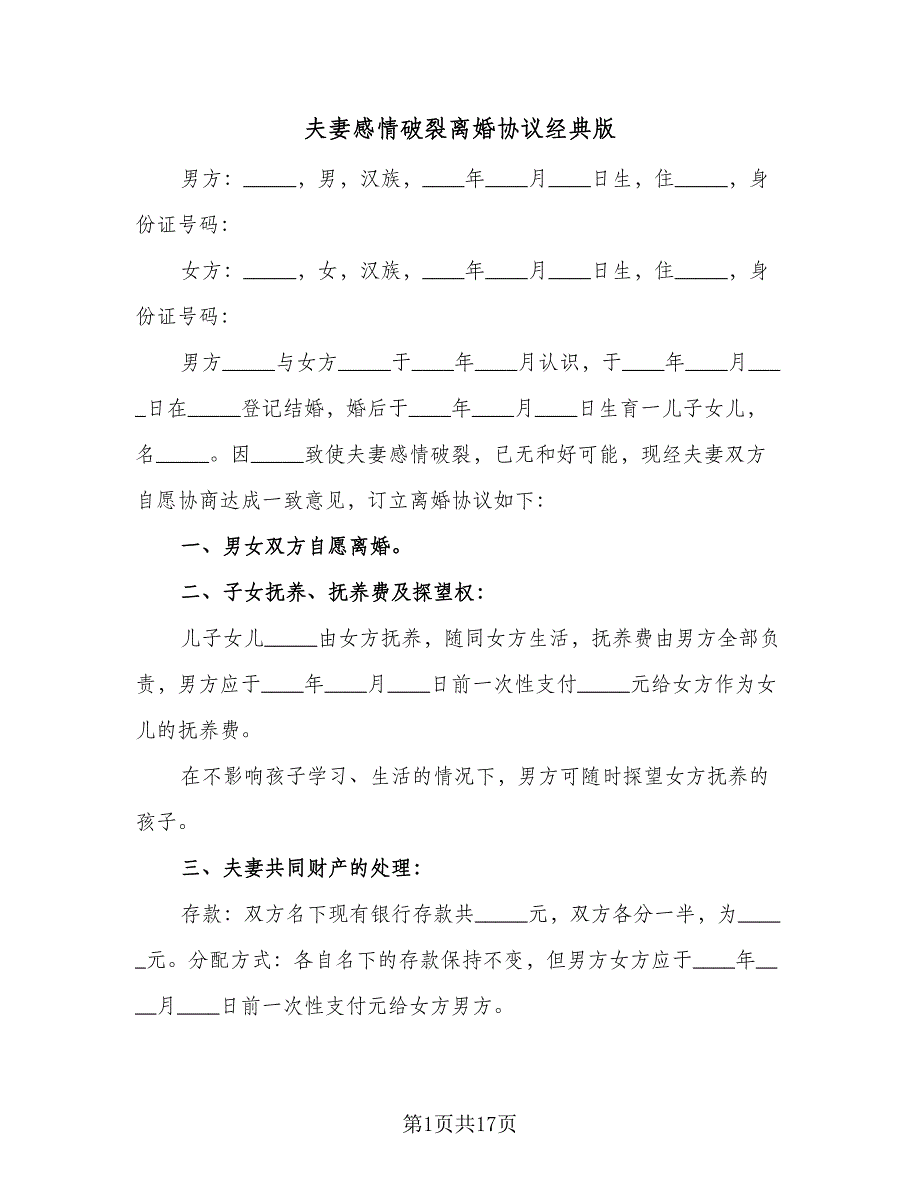 夫妻感情破裂离婚协议经典版
男方：_____，男，汉族，____年____月____日生，住_____，身
份证号码：
女方：_____，女，汉族，____年____月____日生，住_____，身
份证号码：
男方_____与女方_____于____年____月认识，于____年____月___
_日在_____登记结婚，婚后于____年____月____日生育一儿子女儿，
名_____。因_____致使夫妻感情破裂，已无和好可能，现经夫妻双方
自愿协商达成一致意见，订立离婚协议如下：
一、男女双方自愿离婚。
二、子女抚养、抚养费及探望权：
儿子女儿_____由女方抚养，随同女方生活，抚养费由男方全部负
责，男方应于____年____月____日前一次性支付_____元给女方作为女
儿的抚养费。
在不影响孩子学习、生活的情况下，男方可随时探望女方抚养的
孩子。
三、夫妻共同财产的处理：
存款：双方名下现有银行存款共_____元，双方各分一半，为____
_元。分配方式：各自名下的存款保持不变，但男方女方应于____年__
__月____日前一次性支付元给女方男方。
第1页共17页